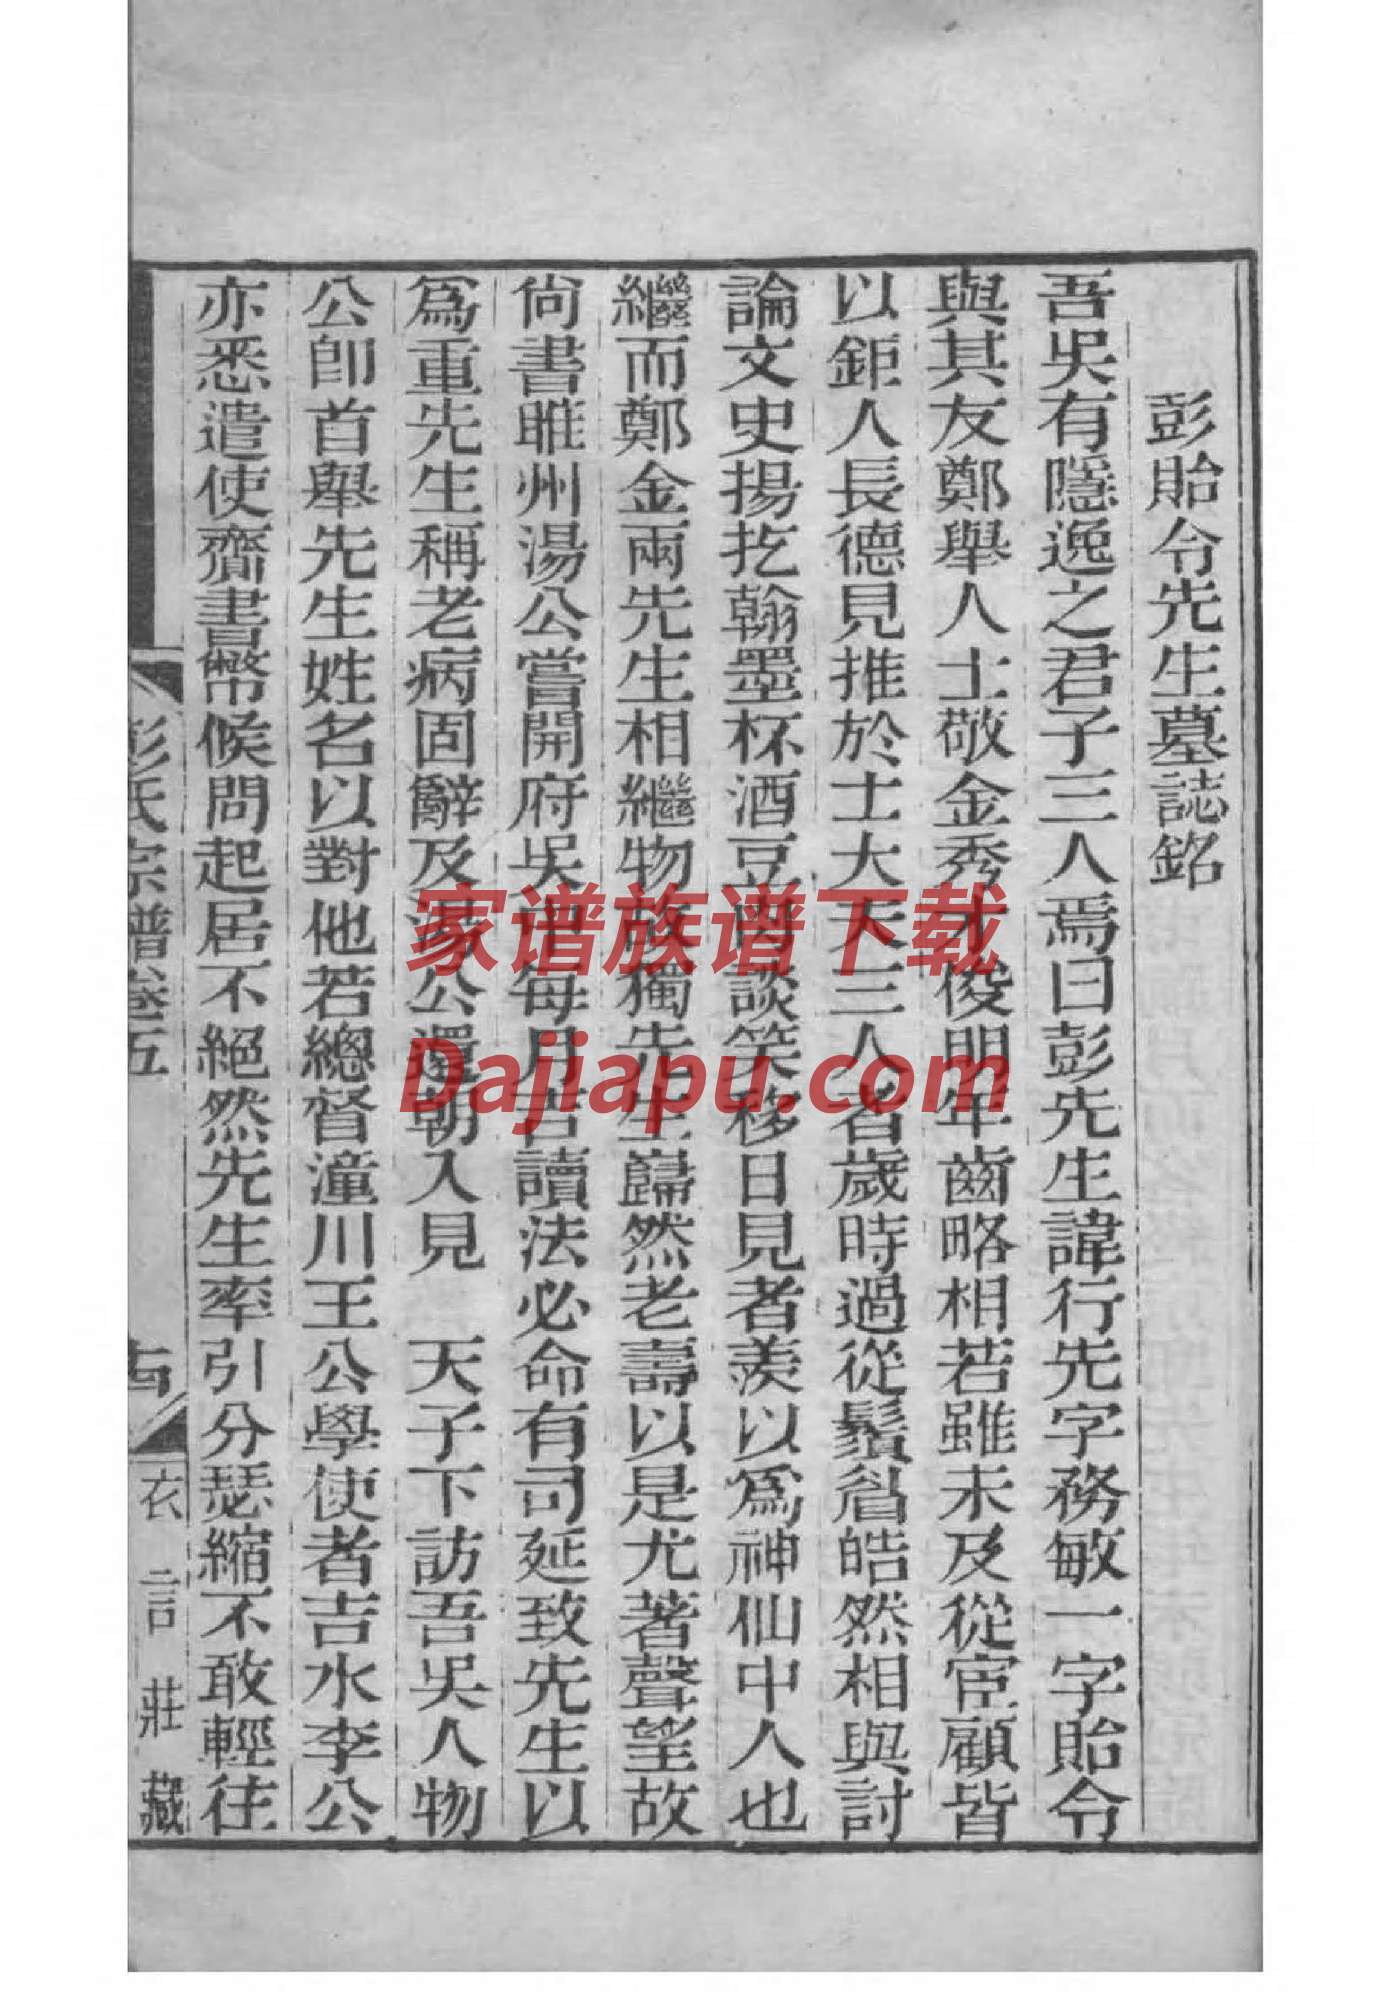 彭貽令先生墓誌銘
吾吳有隱逸之君子三人焉曰彭先生諱行先字務敏一字貽令
與其友鄭舉人士敬金秀才俊明年齒略相若雖未及從宦顧皆
以鉅人長德見推於士大夫三人者歲時過從鬚眉皓然相與討
論文史揚扢翰墨杯酒豆肉談笑移日見者羨以爲神仙中人也
繼而鄭金兩先生相繼物故獨先生巋然老壽以是尤著聲望故
尙書睢州湯公嘗開府吳中每月吉讀法必命有司延致先生以
爲重先生稱老病固辭及湯公還朝入見　天子下訪吾吳人物
公卽首舉先生姓名以對他若總督潼川王公學使者吉水李公
亦悉遣使齎書幣候問起居不絕然先生率引分瑟縮不敢輕往
彭氏宗譜卷五
衣言莊藏
家谱族谱下载
Dajiapu.com